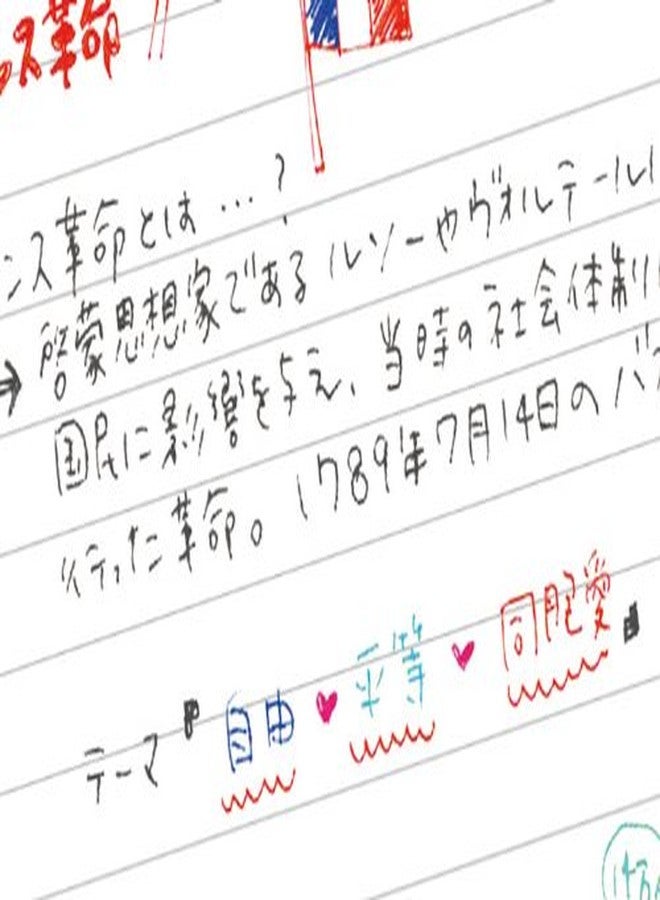 ス革命!!
ンス革命とは…?
⇒ 啓蒙思想家である ルソーやヴォルテール
国民に影響を与え、当時の社会体制
行った革命。1789年7月14日のバ
テーマ『自由♥平等♥同胞愛』